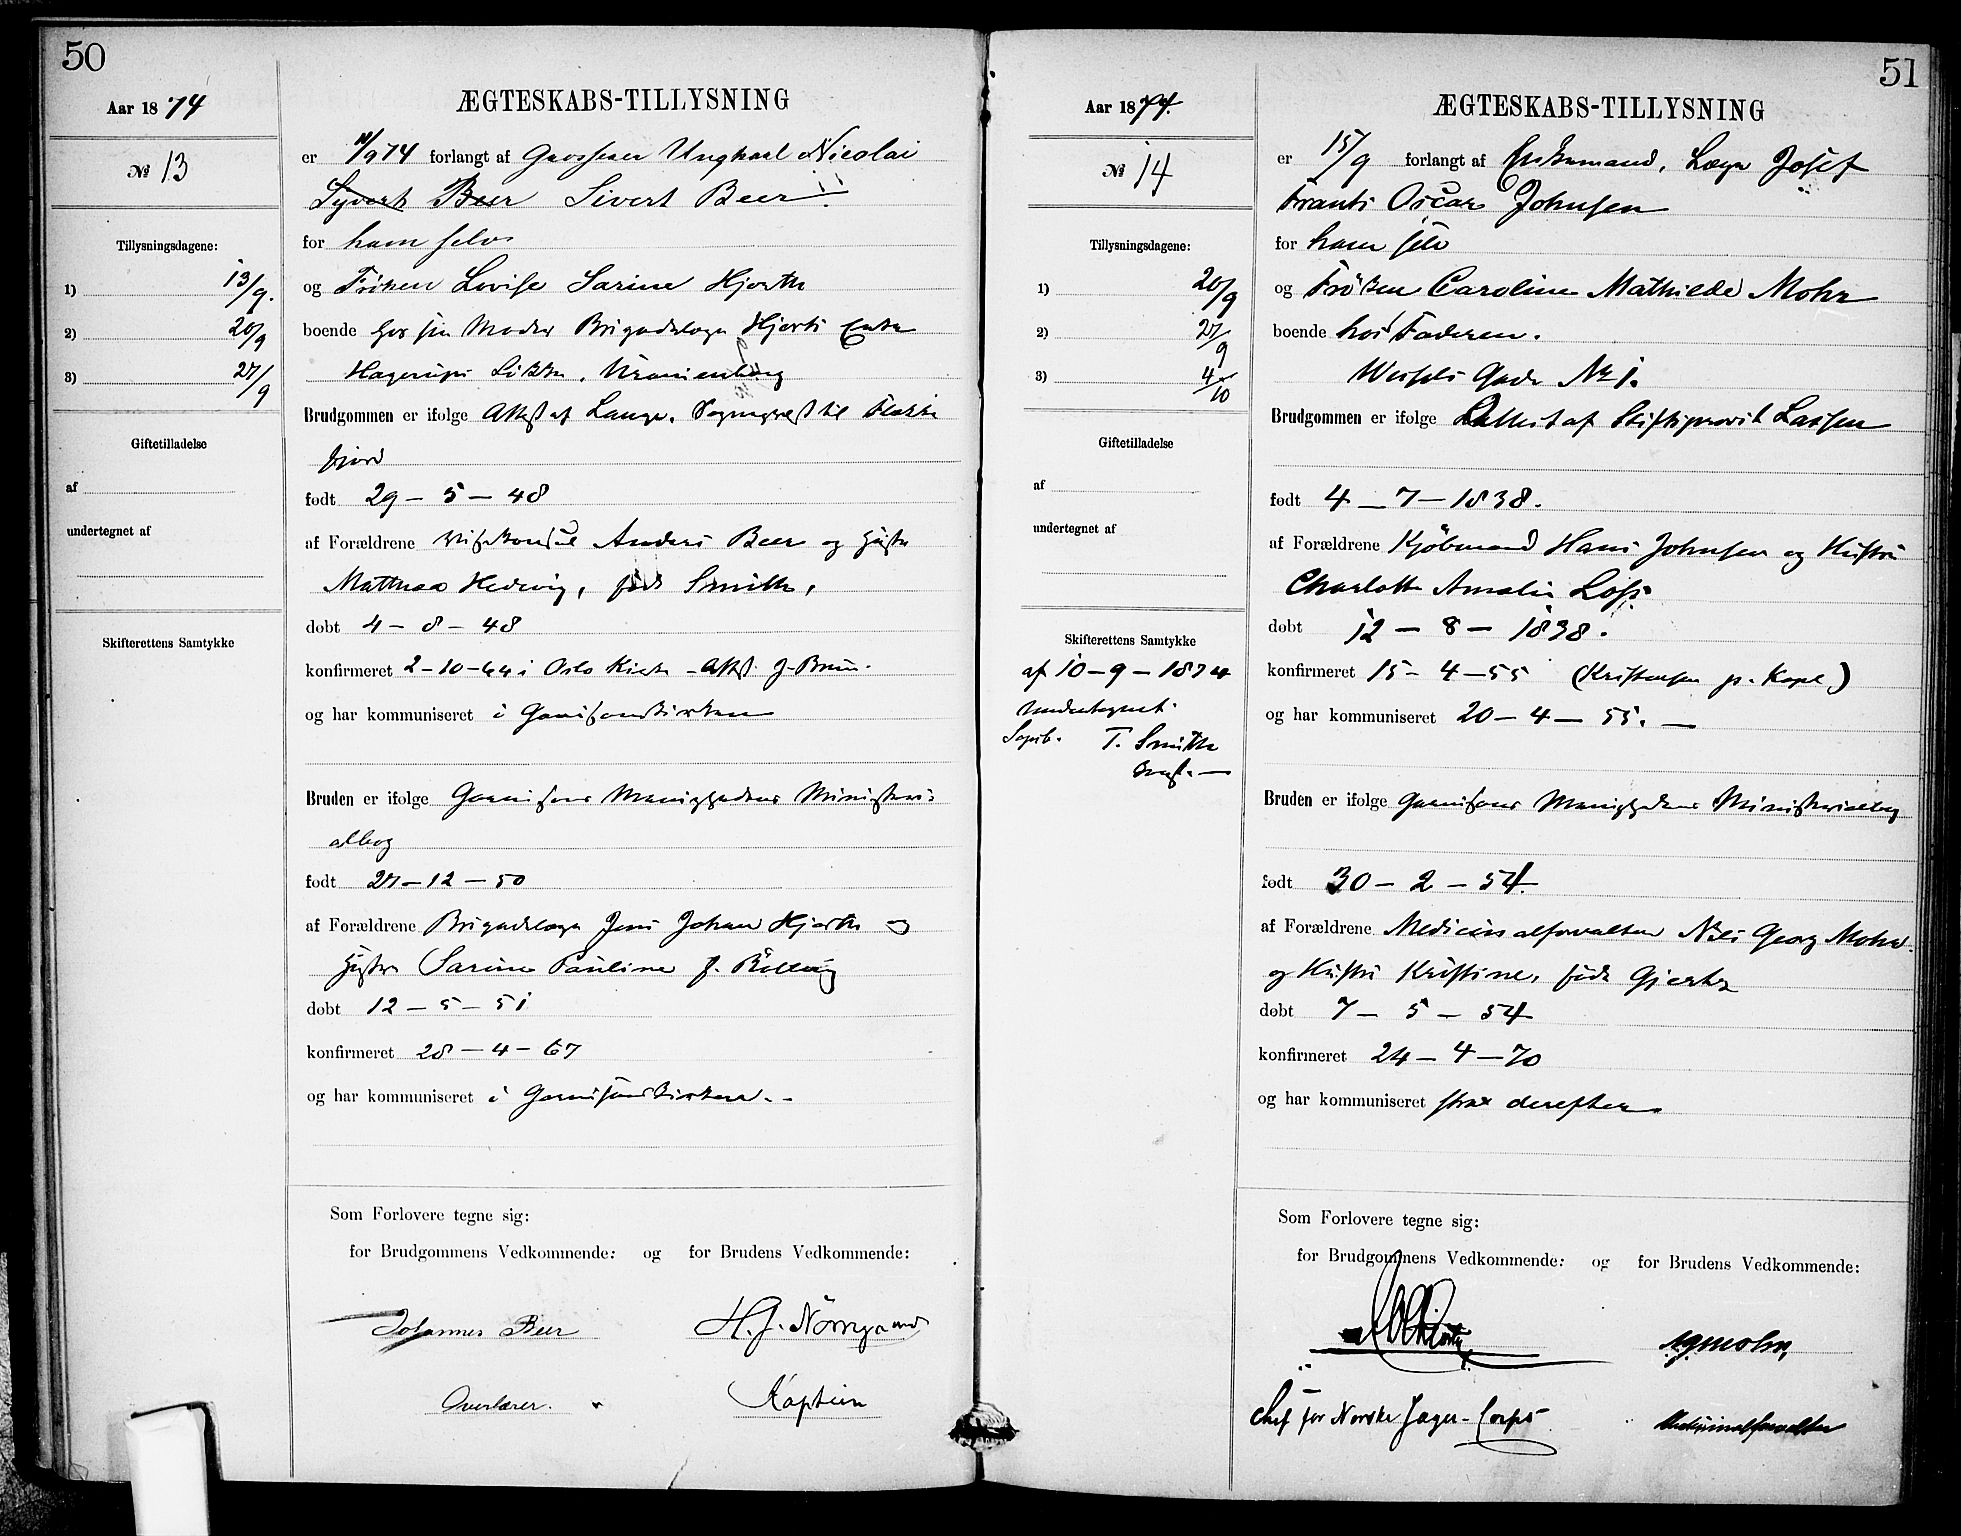 50
Aar 1874
ÆGTESKABS-TILLYSNING
No 13
er 11/9 74 forlangt af Grosserer Ungkarl Nicolai
Syvert Beer Sivert Beer
for ham selv
Tillysningsdagene:
1) 13/9.
2) 20/9
3) 27/9
og Frøken Lovise Sarine Hjorth
boende hos sin Moder Brigadelæge Hjorts Enke
Hagerups Løkke, Uranienborg
Giftetilladelse
af
undertegnet af
Skifterettens Samtykke
Brudgommen er ifølge Attest af Lange, Sogneprest til Flekke
fjord
født 29 – 5 – 48
af Forældrene Visekonsul Anders Beer og Hustru
Mathea Hedvig, født Smith,
døbt 4 – 8 – 48
konfirmeret 2-10-64 i Oslo Kirke - Attst. J. Bruun.
og har kommuniseret i Garnisonskirken
Bruden er ifølge Garnisons Menighedens Ministeri-
albog
født 27 – 12 – 50
af Forældrene Brigadelæge Jens Johan Hjorth og
Hustru Sarine Pauline f.
døbt 12 – 5 – 51
konfirmeret 28 – 4 – 67
og har kommuniseret i Garnisonskirken. -
Som Forlovere tegne sig:
for Brudgommens Vedkommende: og for Brudens Vedkommende:
Johannes Beer H. J. Nørregaard
Overlærer. Kaptein
51
Aar 1874.
ÆGTESKABS-TILLYSNING
No 14
er 15/9 forlangt af Enkemand, Læge Josef
Frants Oscar Johnsen
for ham selv
Tillysningsdagene:
1) 20/9
2) 27/9
3) 4/10
og Frøken Caroline Mathilde Mohr
boende hos Faderen.
Wessels Gade No 1.
Giftetilladelse
af
undertegnet af
Skifterettens Samtykke
af 10 – 9 – 1874
undertegnet
T. Smith
Brudgommen er ifølge Attest af Stiftsprovst Lassen
født 4 – 7 – 1838.
af Forældrene Kjøbmand Hans Johnsen og Hustru
Charlotte Amalie
døbt 12 – 8 – 1838.
konfirmeret 15 – 4 – 55 (Kristensen p. Kapl.)
og har kommuniseret 20 – 4 – 55. —
Bruden er ifølge Garnisons Menighedens Ministerialbog
født 30 – 2 – 54.
af Forældrene Medicinalforvalter Nils Georg Mohr
og Hustru Kristine, født Gjertz
døbt 7 – 5 – 54
konfirmeret 24 – 4 – 70
og har kommuniseret strax derefter
Som Forlovere tegne sig:
for Brudgommens Vedkommende: og for Brudens Vedkommende:
NGMohr,
Chef for Norske Jæger-Corps. Medicinalforvalter